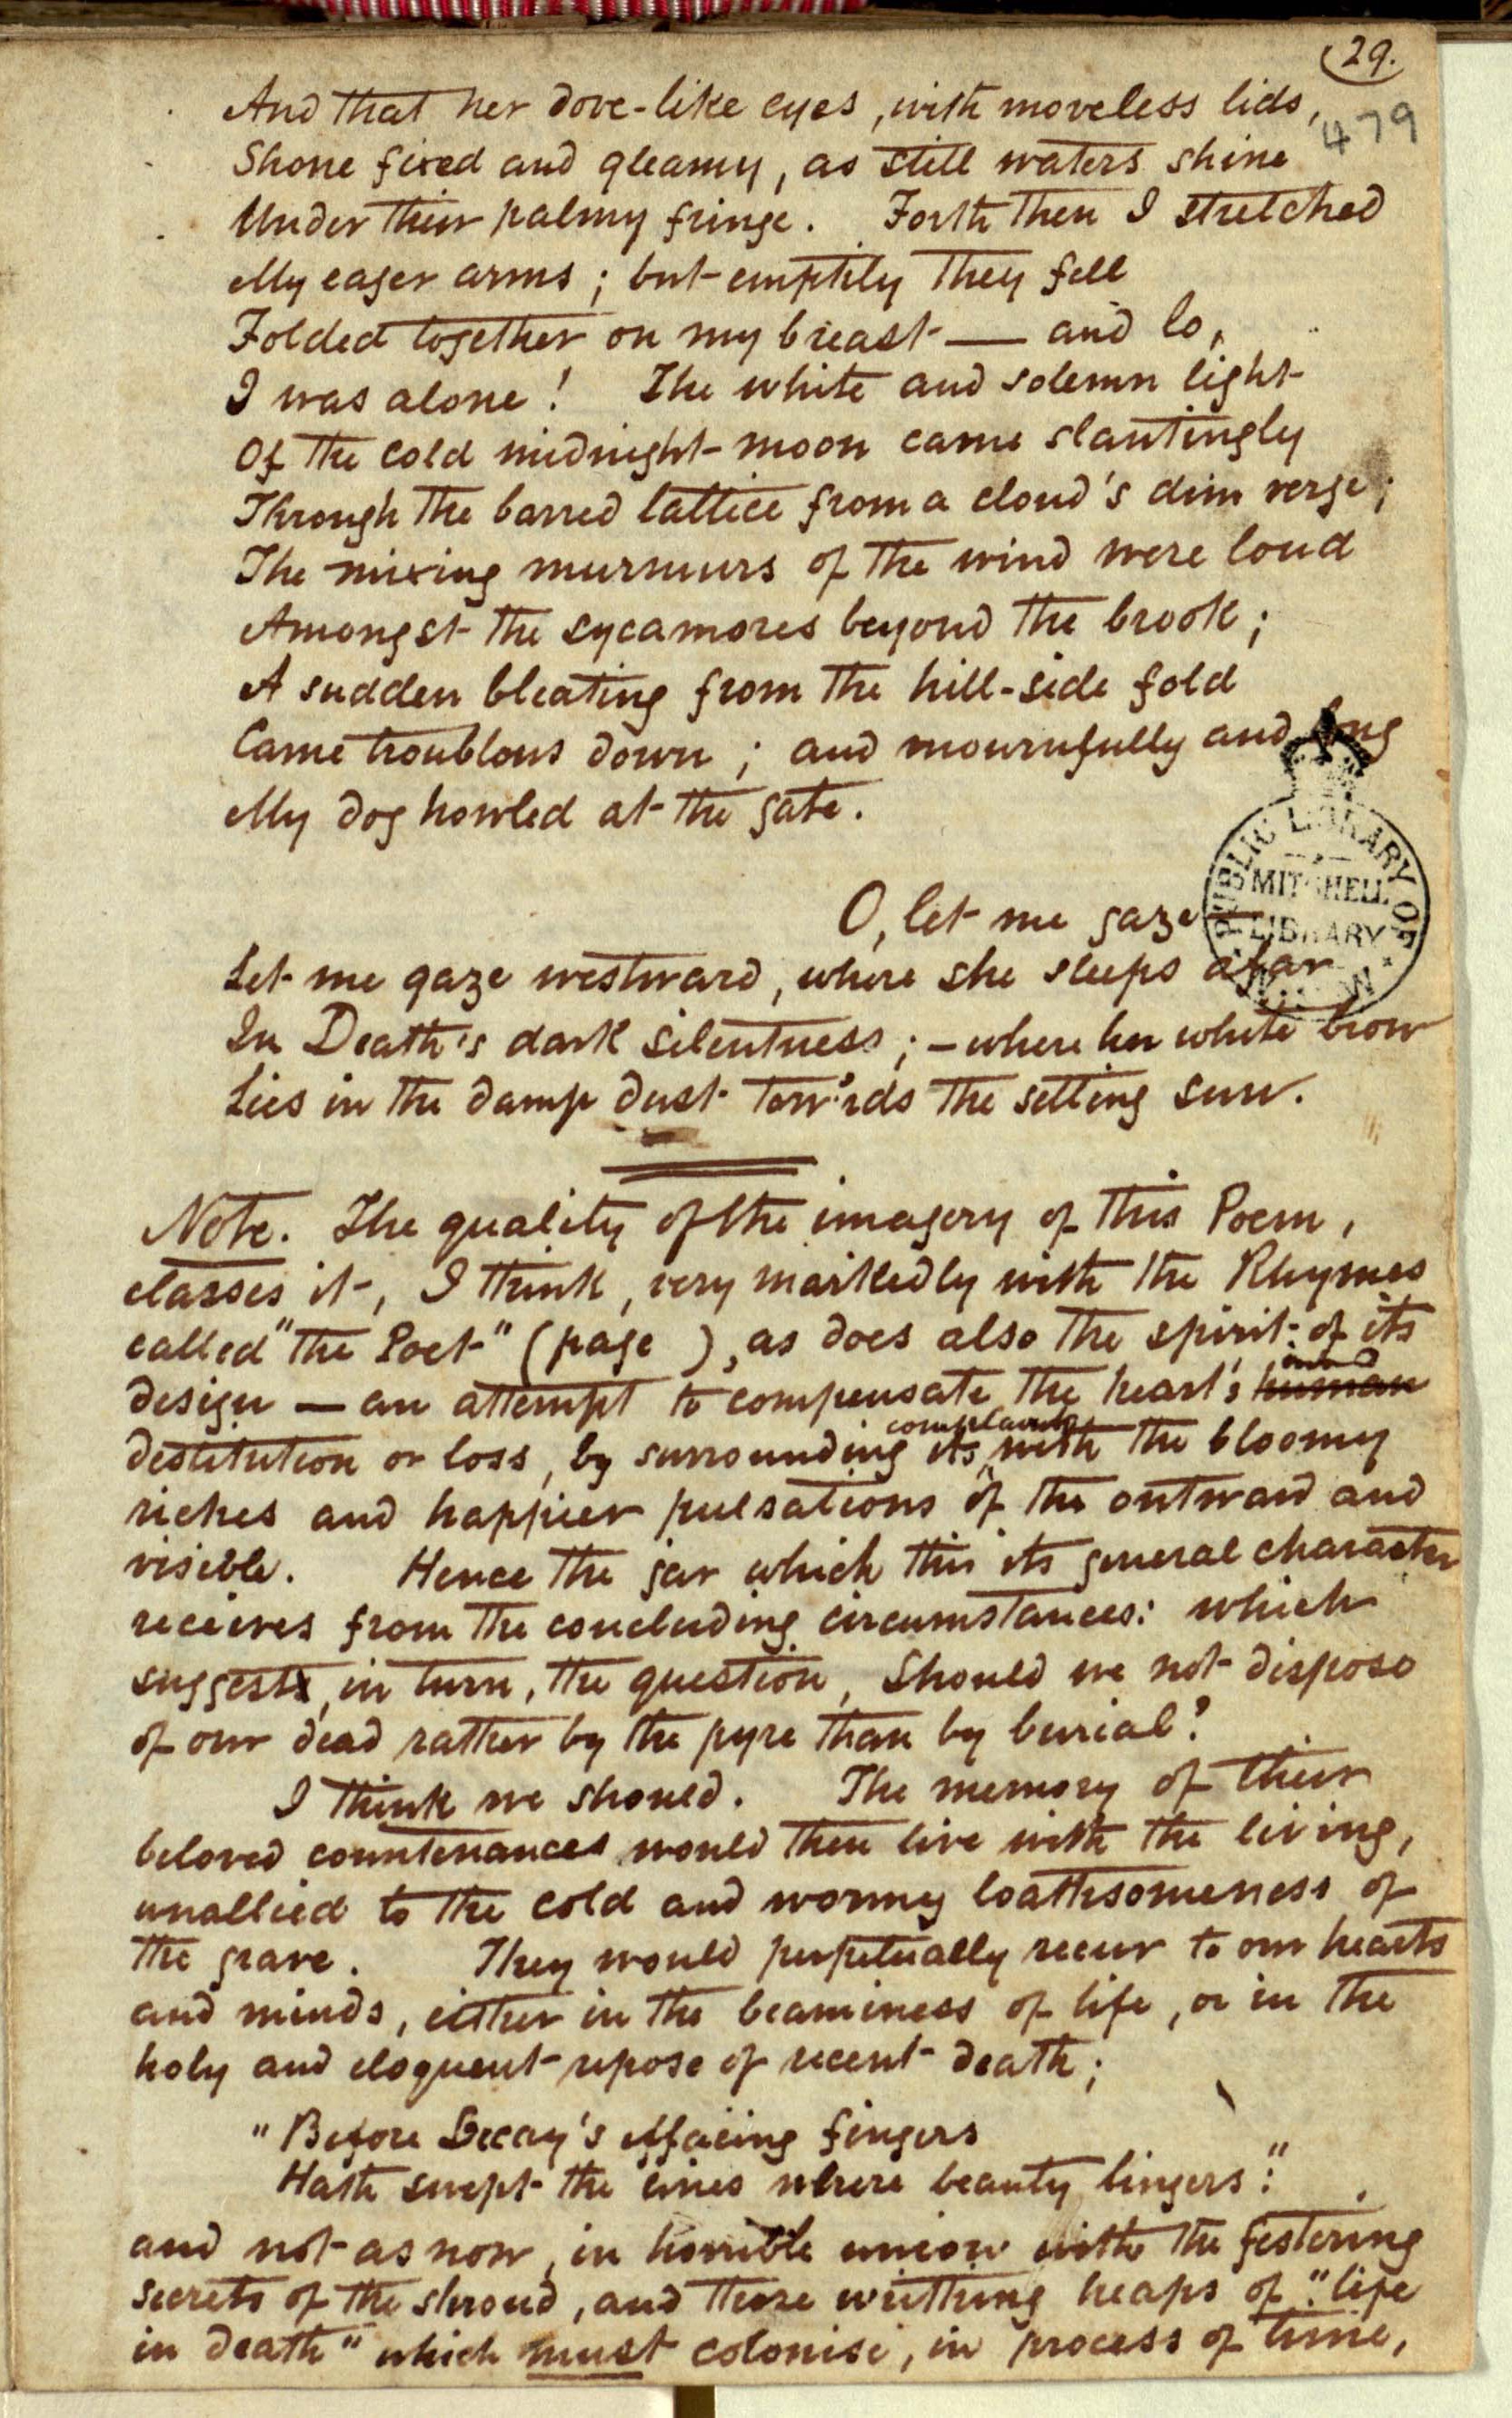 29.
479
And that her dove-like eyes, with moveless lids,
Shone fixed and gleamy, as still waters shine
Under their palmy fringe. Forth then I stretched
My eager arms; but emptily they fell
Folded together on my breast — and lo,
I was alone! The white and solemn light
Of the cold midnight moon came slantingly
Through the barred lattice from a cloud's dim verge;
The mixing murmurs of the wind were loud
Amongst the sycamores beyond the brook;
A sudden bleating from the hill-side fold
Came troublous down; and mournfully and long
My dog howled at the gate.
O, let me gaze —
PUBLIC LIBRARY OF
MITCHELL
LIBRARY
Let me gaze westward, where she sleeps afar
In Death's dark silentness; – where her white brow
Lies in the damp dust tow'rds the setting sun.
Note. The quality of the imagery of this Poem,
classes it, I think, very markedly with the Rhymes
called "the Poet" (page ), as does also the spirit of its
design — an attempt to compensate the heart's human
destitution or loss, by surrounding its complaints with the bloomy
riches and happier pulsations of the outward and
visible. Hence the jar which this its general character
receives from the concluding circumstances: which
suggests, in turn, the question, Should we not dispose
of our dead rather by the pyre than by burial?
I think we should. The memory of their
beloved countenances would then live with the living,
unallied to the cold and wormy loathsomeness of
the grave. They would perpetually recur to our hearts
and minds, either in the beaminess of life, or in the
holy and eloquent repose of recent death;
"Before Decay's effacing fingers
Hath swept the lines where beauty lingers:"
and not as now, in horrible union with the festering
secrets of the shroud, and those writhing heaps of "life
in death" which must colonise, in process of time,